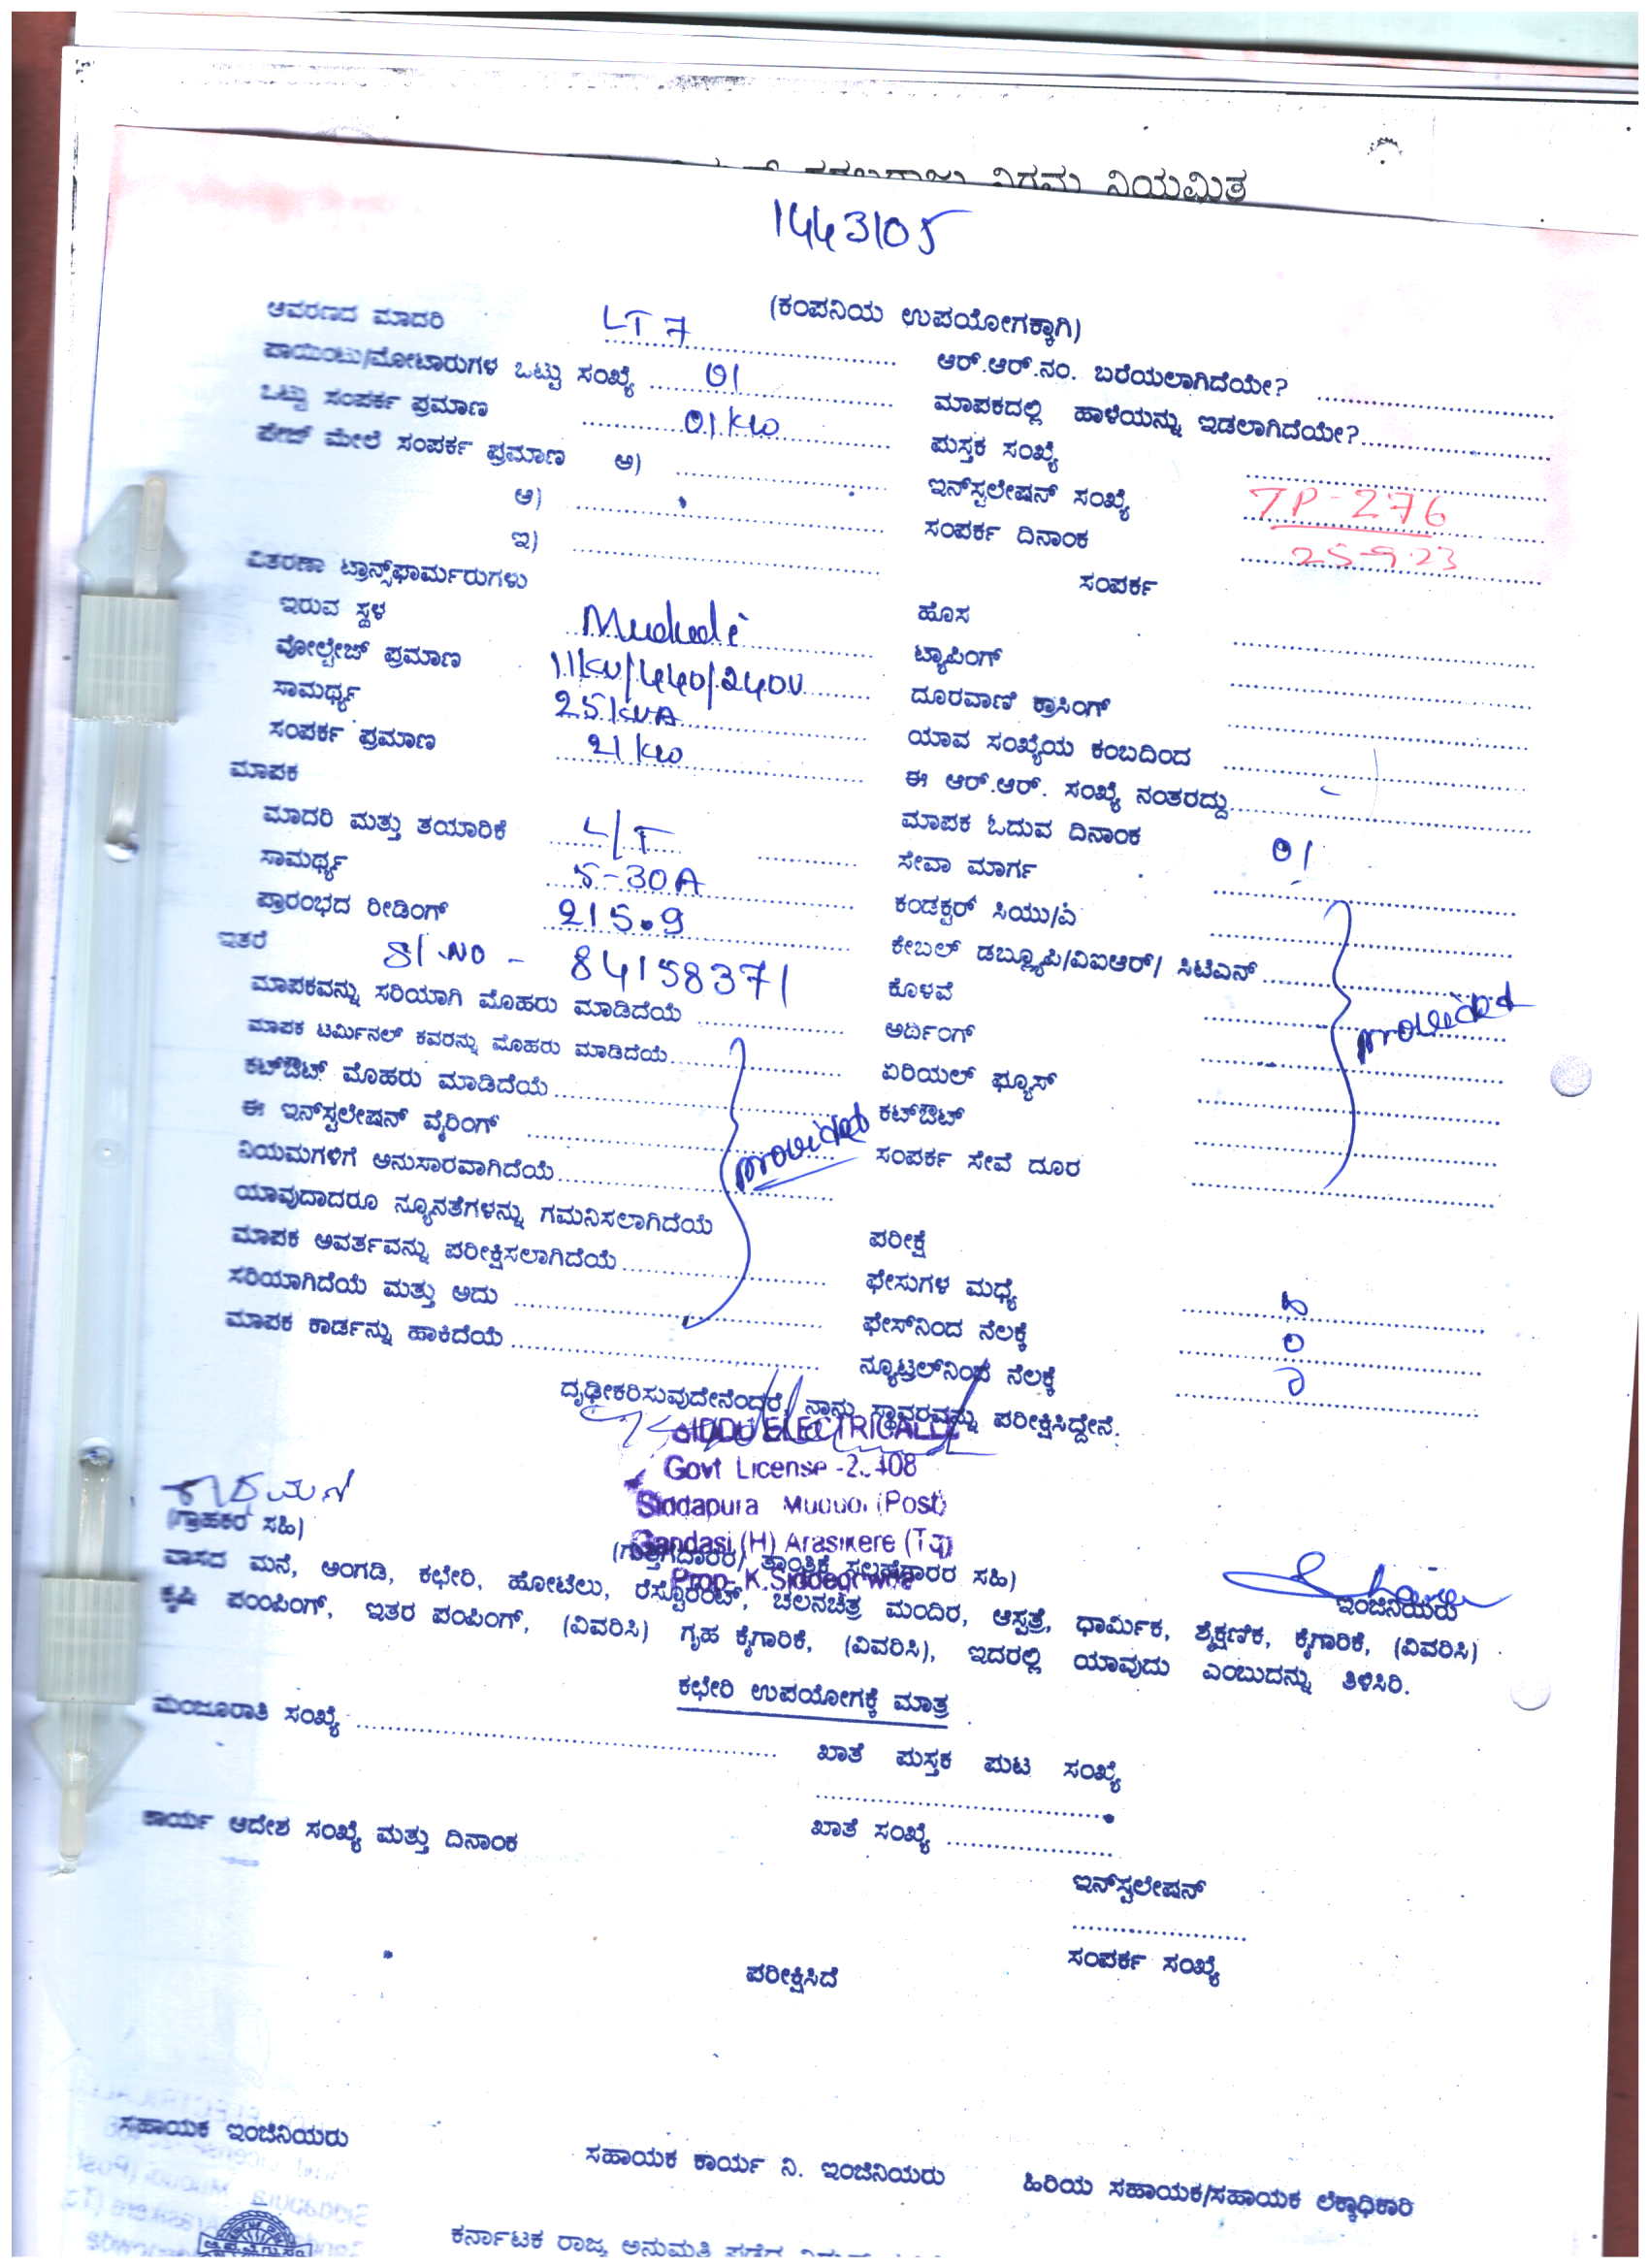 ನಿಗಮ ನಿಯಮಿತ
1443105
(ಕಂಪನಿಯ ಉಪಯೋಗಕ್ಕಾಗಿ)
ಆವರಣದ ಮಾದರಿ LT 7
ಪಾಯಿಂಟು/ಮೋಟಾರುಗಳ ಒಟ್ಟು ಸಂಖ್ಯೆ 01
ಒಟ್ಟು ಸಂಪರ್ಕ ಪ್ರಮಾಣ 01 KW
ಪೇಜ್ ಮೇಲೆ ಸಂಪರ್ಕ ಪ್ರಮಾಣ ಅ)
ಆ)
ಇ)
ವಿತರಣಾ ಟ್ರಾನ್ಸ್‌ಫಾರ್ಮರುಗಳು
ಇರುವ ಸ್ಥಳ Mududi
ವೋಲ್ಟೇಜ್ ಪ್ರಮಾಣ 11KV/440/240V
ಸಾಮರ್ಥ್ಯ 25 KVA
ಸಂಪರ್ಕ ಪ್ರಮಾಣ 21 KW
ಮಾಪಕ
ಮಾದರಿ ಮತ್ತು ತಯಾರಿಕೆ L/T
ಸಾಮರ್ಥ್ಯ 5-30A
ಪ್ರಾರಂಭದ ರೀಡಿಂಗ್ 215.9
ಇತರೆ Sl.NO - 84158371
ಮಾಪಕವನ್ನು ಸರಿಯಾಗಿ ಮೊಹರು ಮಾಡಿದೆಯೆ
ಮಾಪಕ ಟರ್ಮಿನಲ್ ಕವರನ್ನು ಮೊಹರು ಮಾಡಿದೆಯೆ
ಕಟ್‌ಔಟ್ ಮೊಹರು ಮಾಡಿದೆಯೆ
ಈ ಇನ್‌ಸ್ಟಲೇಷನ್ ವೈರಿಂಗ್
ನಿಯಮಗಳಿಗೆ ಅನುಸಾರವಾಗಿದೆಯೆ provided
ಯಾವುದಾದರೂ ನ್ಯೂನತೆಗಳನ್ನು ಗಮನಿಸಲಾಗಿದೆಯೆ
ಮಾಪಕ ಅವರ್ತವನ್ನು ಪರೀಕ್ಷಿಸಲಾಗಿದೆಯೆ
ಸರಿಯಾಗಿದೆಯೆ ಮತ್ತು ಅದು
ಮಾಪಕ ಕಾರ್ಡನ್ನು ಹಾಕಿದೆಯೆ
ಆರ್.ಆರ್.ನಂ. ಬರೆಯಲಾಗಿದೆಯೇ?
ಮಾಪಕದಲ್ಲಿ ಹಾಳೆಯನ್ನು ಇಡಲಾಗಿದೆಯೇ?
ಪುಸ್ತಕ ಸಂಖ್ಯೆ
ಇನ್‌ಸ್ಟಲೇಷನ್ ಸಂಖ್ಯೆ TP-276
ಸಂಪರ್ಕ ದಿನಾಂಕ 25-9-23
ಸಂಪರ್ಕ
ಹೊಸ
ಟ್ಯಾಪಿಂಗ್
ದೂರವಾಣಿ ಕ್ರಾಸಿಂಗ್
ಯಾವ ಸಂಖ್ಯೆಯ ಕಂಬದಿಂದ
ಈ ಆರ್.ಆರ್. ಸಂಖ್ಯೆ ನಂತರದ್ದು
ಮಾಪಕ ಓದುವ ದಿನಾಂಕ 01
ಸೇವಾ ಮಾರ್ಗ
ಕಂಡಕ್ಟರ್ ಸಿಯು/ಎ
ಕೇಬಲ್ ಡಬ್ಲ್ಯೂಪಿ/ವಿಐಆರ್/ ಸಿಟಿಎನ್
ಕೊಳವೆ provided
ಅರ್ದಿಂಗ್
ಏರಿಯಲ್ ಫ್ಯೂಸ್
ಕಟ್‌ಔಟ್
ಸಂಪರ್ಕ ಸೇವೆ ದೂರ
ಪರೀಕ್ಷೆ
ಫೇಸುಗಳ ಮಧ್ಯೆ
ಫೇಸ್‌ನಿಂದ ನೆಲಕ್ಕೆ
ನ್ಯೂಟ್ರಲ್‌ನಿಂದ ನೆಲಕ್ಕೆ
ದೃಢೀಕರಿಸುವುದೇನೆಂದರೆ, ನಾನು ಸ್ಥಾವರವನ್ನು ಪರೀಕ್ಷಿಸಿದ್ದೇನೆ.
SIDDU ELECTRICALLS
Govt License
Siddapura (Post)
Gandasi (H) Arasikere (Tq)
Prop- K.Siddegowda
(ಗ್ರಾಹಕರ ಸಹಿ)
(ಗುತ್ತಿಗೆದಾರರ/ ತಾಂತ್ರಿಕ ಸಲಹೆಗಾರರ ಸಹಿ)
ಇಂಜಿನಿಯರು
ವಾಸದ ಮನೆ, ಅಂಗಡಿ, ಕಛೇರಿ, ಹೋಟೆಲು, ರೆಸ್ಟೊರೆಂಟ್, ಚಲನಚಿತ್ರ ಮಂದಿರ, ಆಸ್ಪತ್ರೆ, ಧಾರ್ಮಿಕ, ಶೈಕ್ಷಣಿಕ, ಕೈಗಾರಿಕೆ, (ವಿವರಿಸಿ)
ಕೃಷಿ ಪಂಪಿಂಗ್, ಇತರ ಪಂಪಿಂಗ್, (ವಿವರಿಸಿ) ಗೃಹ ಕೈಗಾರಿಕೆ, (ವಿವರಿಸಿ), ಇದರಲ್ಲಿ ಯಾವುದು ಎಂಬುದನ್ನು ತಿಳಿಸಿರಿ.
ಕಛೇರಿ ಉಪಯೋಗಕ್ಕೆ ಮಾತ್ರ
ಮಂಜೂರಾತಿ ಸಂಖ್ಯೆ
ಖಾತೆ ಪುಸ್ತಕ ಪುಟ ಸಂಖ್ಯೆ
ಕಾರ್ಯ ಆದೇಶ ಸಂಖ್ಯೆ ಮತ್ತು ದಿನಾಂಕ
ಖಾತೆ ಸಂಖ್ಯೆ
ಇನ್‌ಸ್ಟಲೇಷನ್
ಸಂಪರ್ಕ ಸಂಖ್ಯೆ
ಪರೀಕ್ಷಿಸಿದೆ
ಸಹಾಯಕ ಇಂಜಿನಿಯರು
ಸಹಾಯಕ ಕಾರ್ಯ ನಿ. ಇಂಜಿನಿಯರು
ಹಿರಿಯ ಸಹಾಯಕ/ಸಹಾಯಕ ಲೆಕ್ಕಾಧಿಕಾರಿ
ಕರ್ನಾಟಕ ರಾಜ್ಯ ಅನುಮತಿ ಪಡೆದ